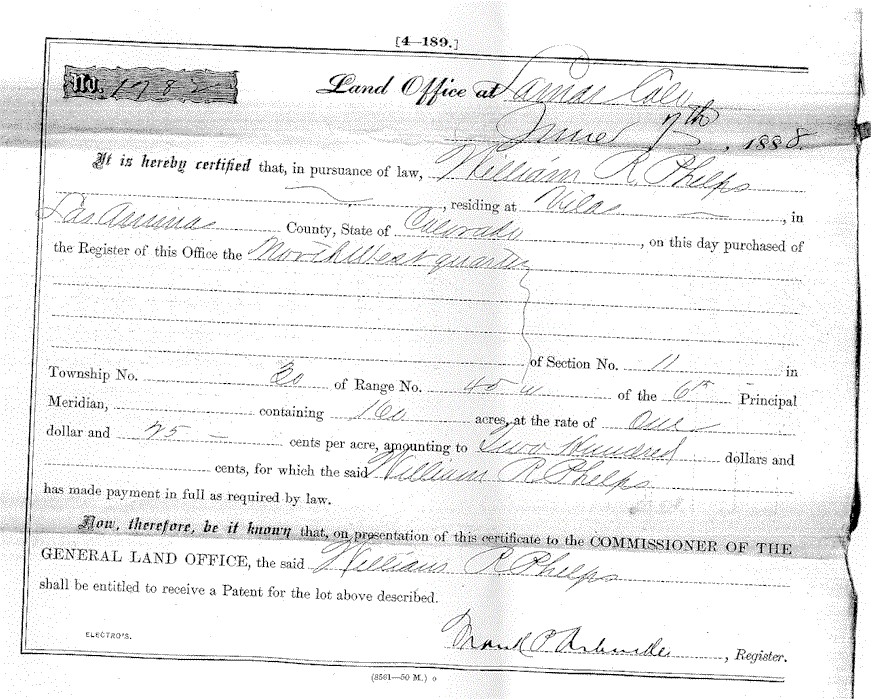 [4—189.]
No. 1782 Land Office at Lamar Colo
June 7th, 1888.
It is hereby certified that, in pursuance of law, William R. Phelps
, residing at Vilas, in
Las Animas County, State of Colorado, on this day purchased of
the Register of this Office the North West quarter
of Section No. 11 in
Township No. 30 of Range No. 45 W of the 6th Principal
Meridian, containing 160 acres, at the rate of One
dollar and 25 cents per acre, amounting to Two Hundred dollars and
cents, for which the said William R. Phelps
has made payment in full as required by law.
Now, therefore, be it known that, on presentation of this certificate to the COMMISSIONER OF THE
GENERAL LAND OFFICE, the said William R Phelps
shall be entitled to receive a Patent for the lot above described.
, Register.
ELECTRO'S.
(8561—50 M.)